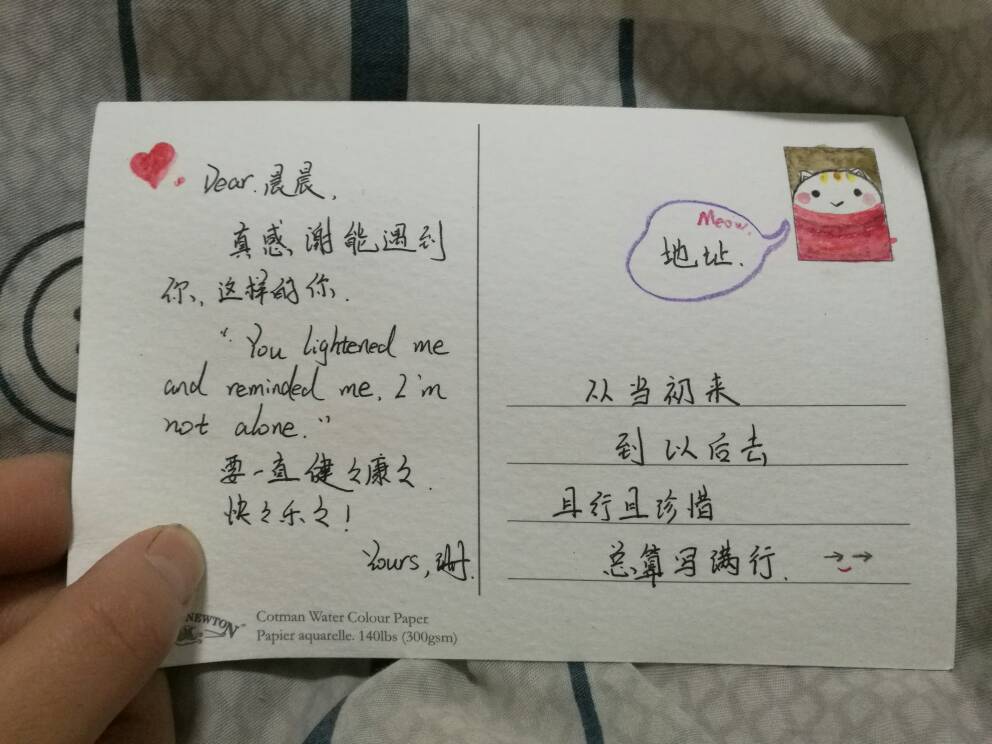 Dear. 晨晨,
真感谢能遇到
你, 这样的你.
"You lightened me
and reminded me, I'm
not alone."
要一直健々康々.
快々乐々!
Yours,
NEWTON
Cotman Water Colour Paper
Papier aquarelle. 140lbs (300gsm)
Meow.
地址.
从当初来
到以后去
且行且珍惜
总算写满行.